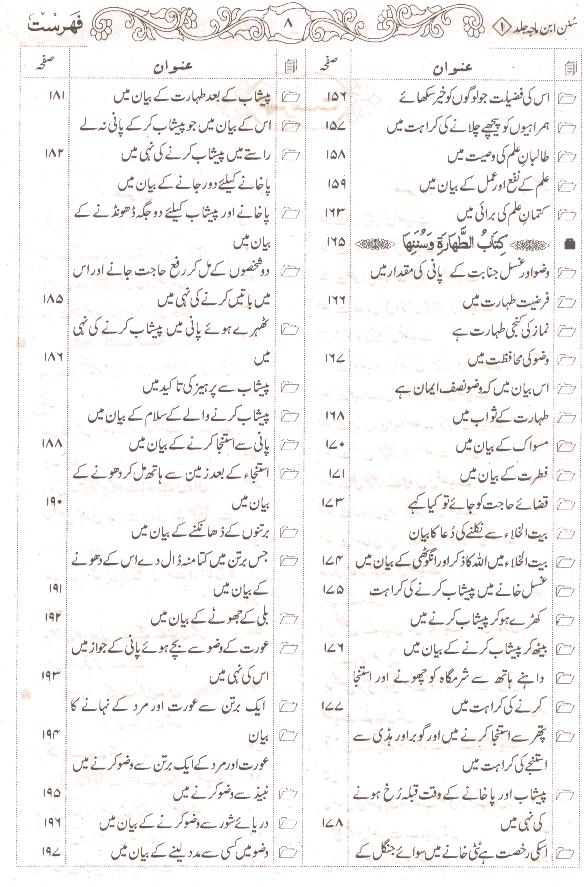 سُنن ابن ماجہ جلد ۱
۸
فہرست
عنوان
صفحہ
اس کی فضیلت جو لوگوں کو خیر سکھائے ۱۵۶
ہمراہیوں کو پیچھے چلانے کی کراہت میں ۱۵۷
طالبانِ علم کی وصیت میں ۱۵۸
علم کے نفع اور عمل کے بیان میں ۱۵۹
کتمانِ علم کی برائی میں ۱۶۳
كِتَابُ الطَّهَارَةِ وَسُنَنِهَا ۱۶۵
وضو اور غسل جنابت کے پانی کی مقدار میں
فرضیت طہارت میں ۱۶۶
نماز کی کنجی طہارت ہے
وضو کی محافظت میں ۱۶۷
اس بیان میں کہ وضو نصف ایمان ہے
طہارت کے ثواب میں ۱۶۸
مسواک کے بیان میں ۱۷۰
فطرت کے بیان میں ۱۷۱
قضائے حاجت کو جائے تو کیا کہے ۱۷۳
بیت الخلاء سے نکلنے کی دُعا کا بیان
بیت الخلاء میں اللہ کا ذکر اور انگوٹھی کے بیان میں ۱۷۴
غسل خانے میں پیشاب کرنے کی کراہت ۱۷۵
کھڑے ہو کر پیشاب کرنے میں
بیٹھ کر پیشاب کرنے کے بیان میں ۱۷۶
داہنے ہاتھ سے شرمگاہ کو چھونے اور استنجا
کرنے کی کراہت میں ۱۷۷
پتھر سے استنجا کرنے میں اور گوبر اور ہڈی سے
استنجے کی کراہت میں
پیشاب اور پاخانے کے وقت قبلہ رُخ ہونے
کی نہی میں ۱۷۸
اسکی رخصت ہے ٹٹی خانے میں سوائے جنگل کے
عنوان
صفحہ
پیشاب کے بعد طہارت کے بیان میں ۱۸۱
اس کے بیان میں جو پیشاب کر کے پانی نہ لے
راستے میں پیشاب کرنے کی نہی میں ۱۸۲
پاخانے کیلئے دور جانے کے بیان میں
پاخانے اور پیشاب کیلئے دو جگہ ڈھونڈنے کے
بیان میں
دو شخصوں کے مل کر رفع حاجت جانے اور اس
میں باتیں کرنے کی نہی میں ۱۸۵
ٹھہرے ہوئے پانی میں پیشاب کرنے کی نہی
میں ۱۸۶
پیشاب سے پرہیز کی تاکید میں
پیشاب کرنے والے کے سلام کے بیان میں
پانی سے استنجا کرنے کے بیان میں ۱۸۸
استنجاء کے بعد زمین سے ہاتھ مل کر دھونے کے
بیان میں ۱۹۰
برتنوں کے ڈھانکنے کے بیان میں
جس برتن میں کتا منہ ڈال دے اس کے دھونے
کے بیان میں ۱۹۱
بلی کے جھوٹے کے بیان میں ۱۹۲
عورت کے وضو سے بچے ہوئے پانی کے جواز میں
اس کی نہی میں ۱۹۳
ایک برتن سے عورت اور مرد کے نہانے کا
بیان ۱۹۴
عورت اور مرد کے ایک برتن سے وضو کرنے میں
نبیذ سے وضو کرنے میں ۱۹۵
دریائے شور سے وضو کرنے کے بیان میں ۱۹۶
وضو میں کسی سے مدد لینے کے بیان میں ۱۹۷